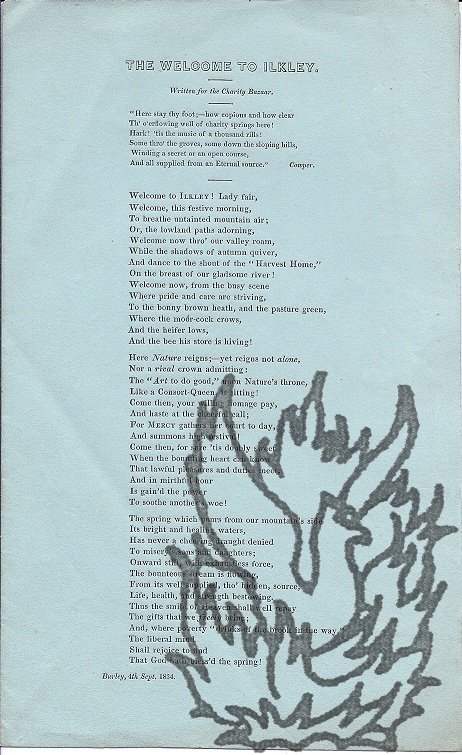 THE WELCOME TO ILKLEY.
Written for the Charity Bazaar.
"Here stay thy foot;—how copious and how clear
Th' o'erflowing well of charity springs here!
Hark! 'tis the music of a thousand rills!
Some thro' the groves, some down the sloping hills,
Winding a secret or an open course,
And all supplied from an Eternal source." Cowper.
Welcome to ILKLEY! Lady fair,
Welcome, this festive morning,
To breathe untainted mountain air;
Or, the lowland paths adorning,
Welcome now thro' our valley roam,
While the shadows of autumn quiver,
And dance to the shout of the "Harvest Home,"
On the breast of our gladsome river!
Welcome now, from the busy scene
Where pride and care are striving,
To the bonny brown heath, and the pasture green,
Where the moor-cock crows,
And the heifer lows,
And the bee his store is hiving!
Here Nature reigns;—yet reigns not alone,
Nor a rival crown admitting:
The "Art to do good," upon Nature's throne,
Like a Consort-Queen is sitting!
Come then, your willing homage pay,
And haste at the cheerful call;
For MERCY gathers her court to day,
And summons her festival!
Come then, for sure 'tis doubly sweet
When the bounding heart can know
That lawful pleasures and duties meet,
And in mirthful hour
Is gain'd the power
To soothe another's woe!
The spring which pours from our mountain's side
Its bright and healing waters,
Has never a cheering draught denied
To misery's sons and daughters;
Onward still, with exhaustless force,
The bounteous stream is flowing,
From its well supplied, tho' hidden, source,
Life, health, and strength bestowing.
Thus the smile of heaven shall well repay
The gifts that we freely bring;
And, where poverty "drinks of the brook in the way,"
The liberal mind
Shall rejoice to find
That God hath bless'd the spring!
Burley, 4th Sept. 1834.